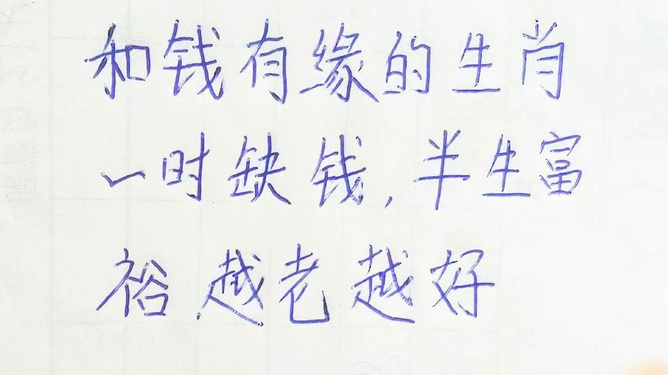 和钱有缘的生肖
一时缺钱,半生富
裕越老越好